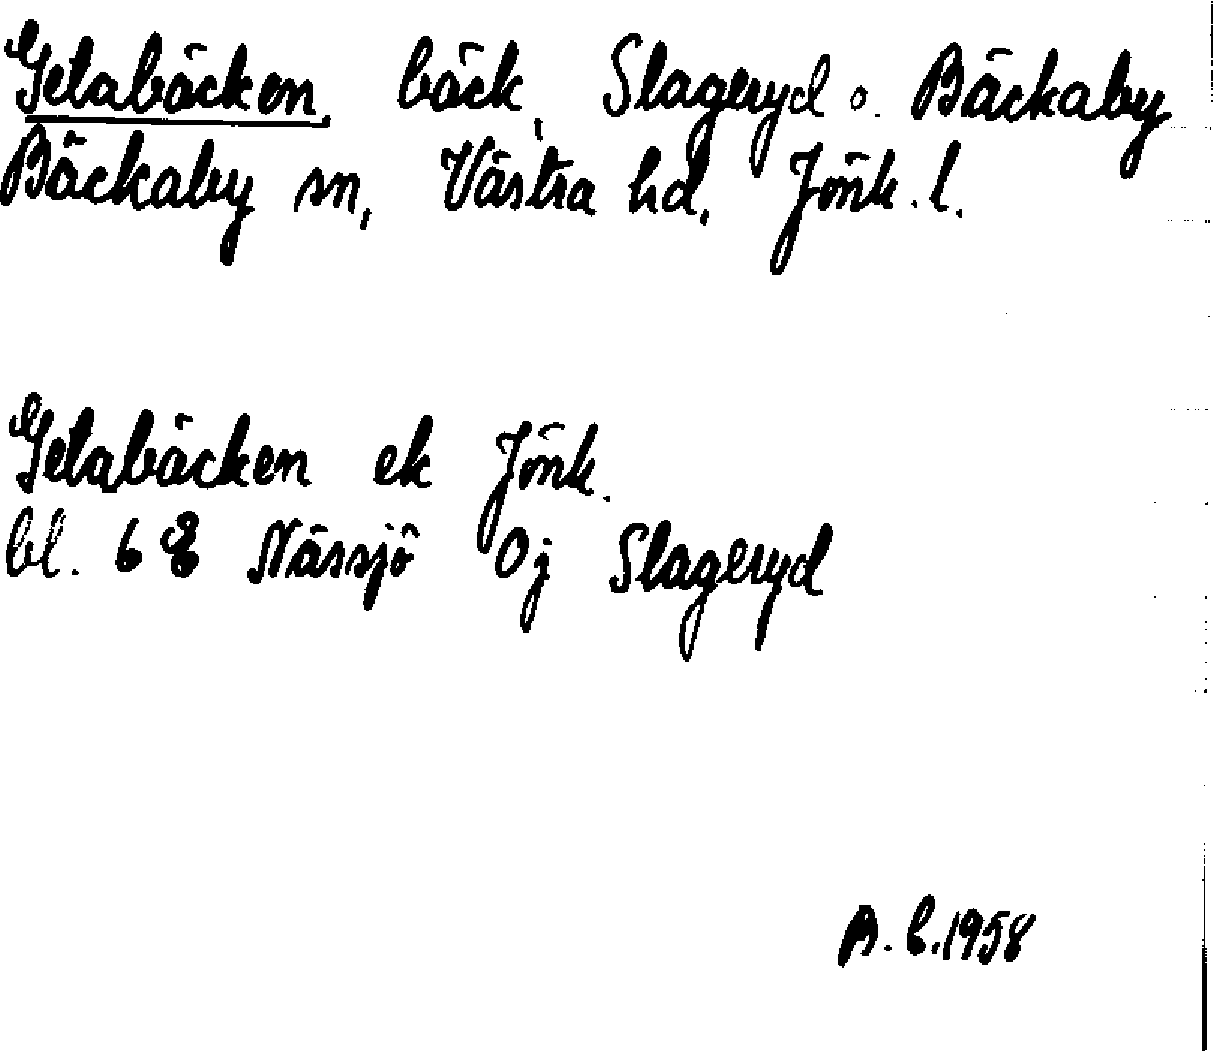 Getabäcken, bäck, Slageryd o. Bäckaby
Bäckaby sn, Västra hd, Jönk. l.
Getabäcken ek Jönk.
bl. 68 Nässjö Öj Slageryd
A. C. 1958